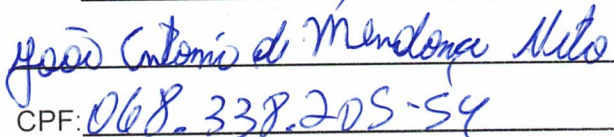 João Antonio de Mendonça Neto
CPF: 068.338.205-54